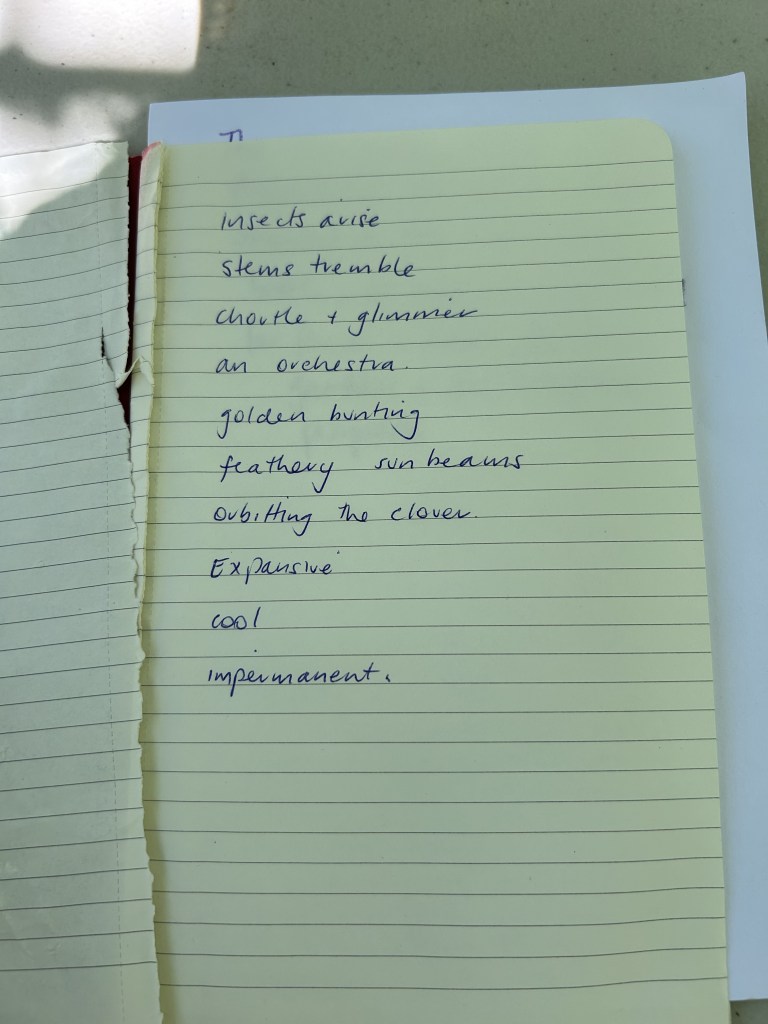 insects arise
stems tremble
chortle + glimmer
an orchestra.
golden bunting
feathery sunbeams
orbitting the clover.
Expansive
cool
impermanent.